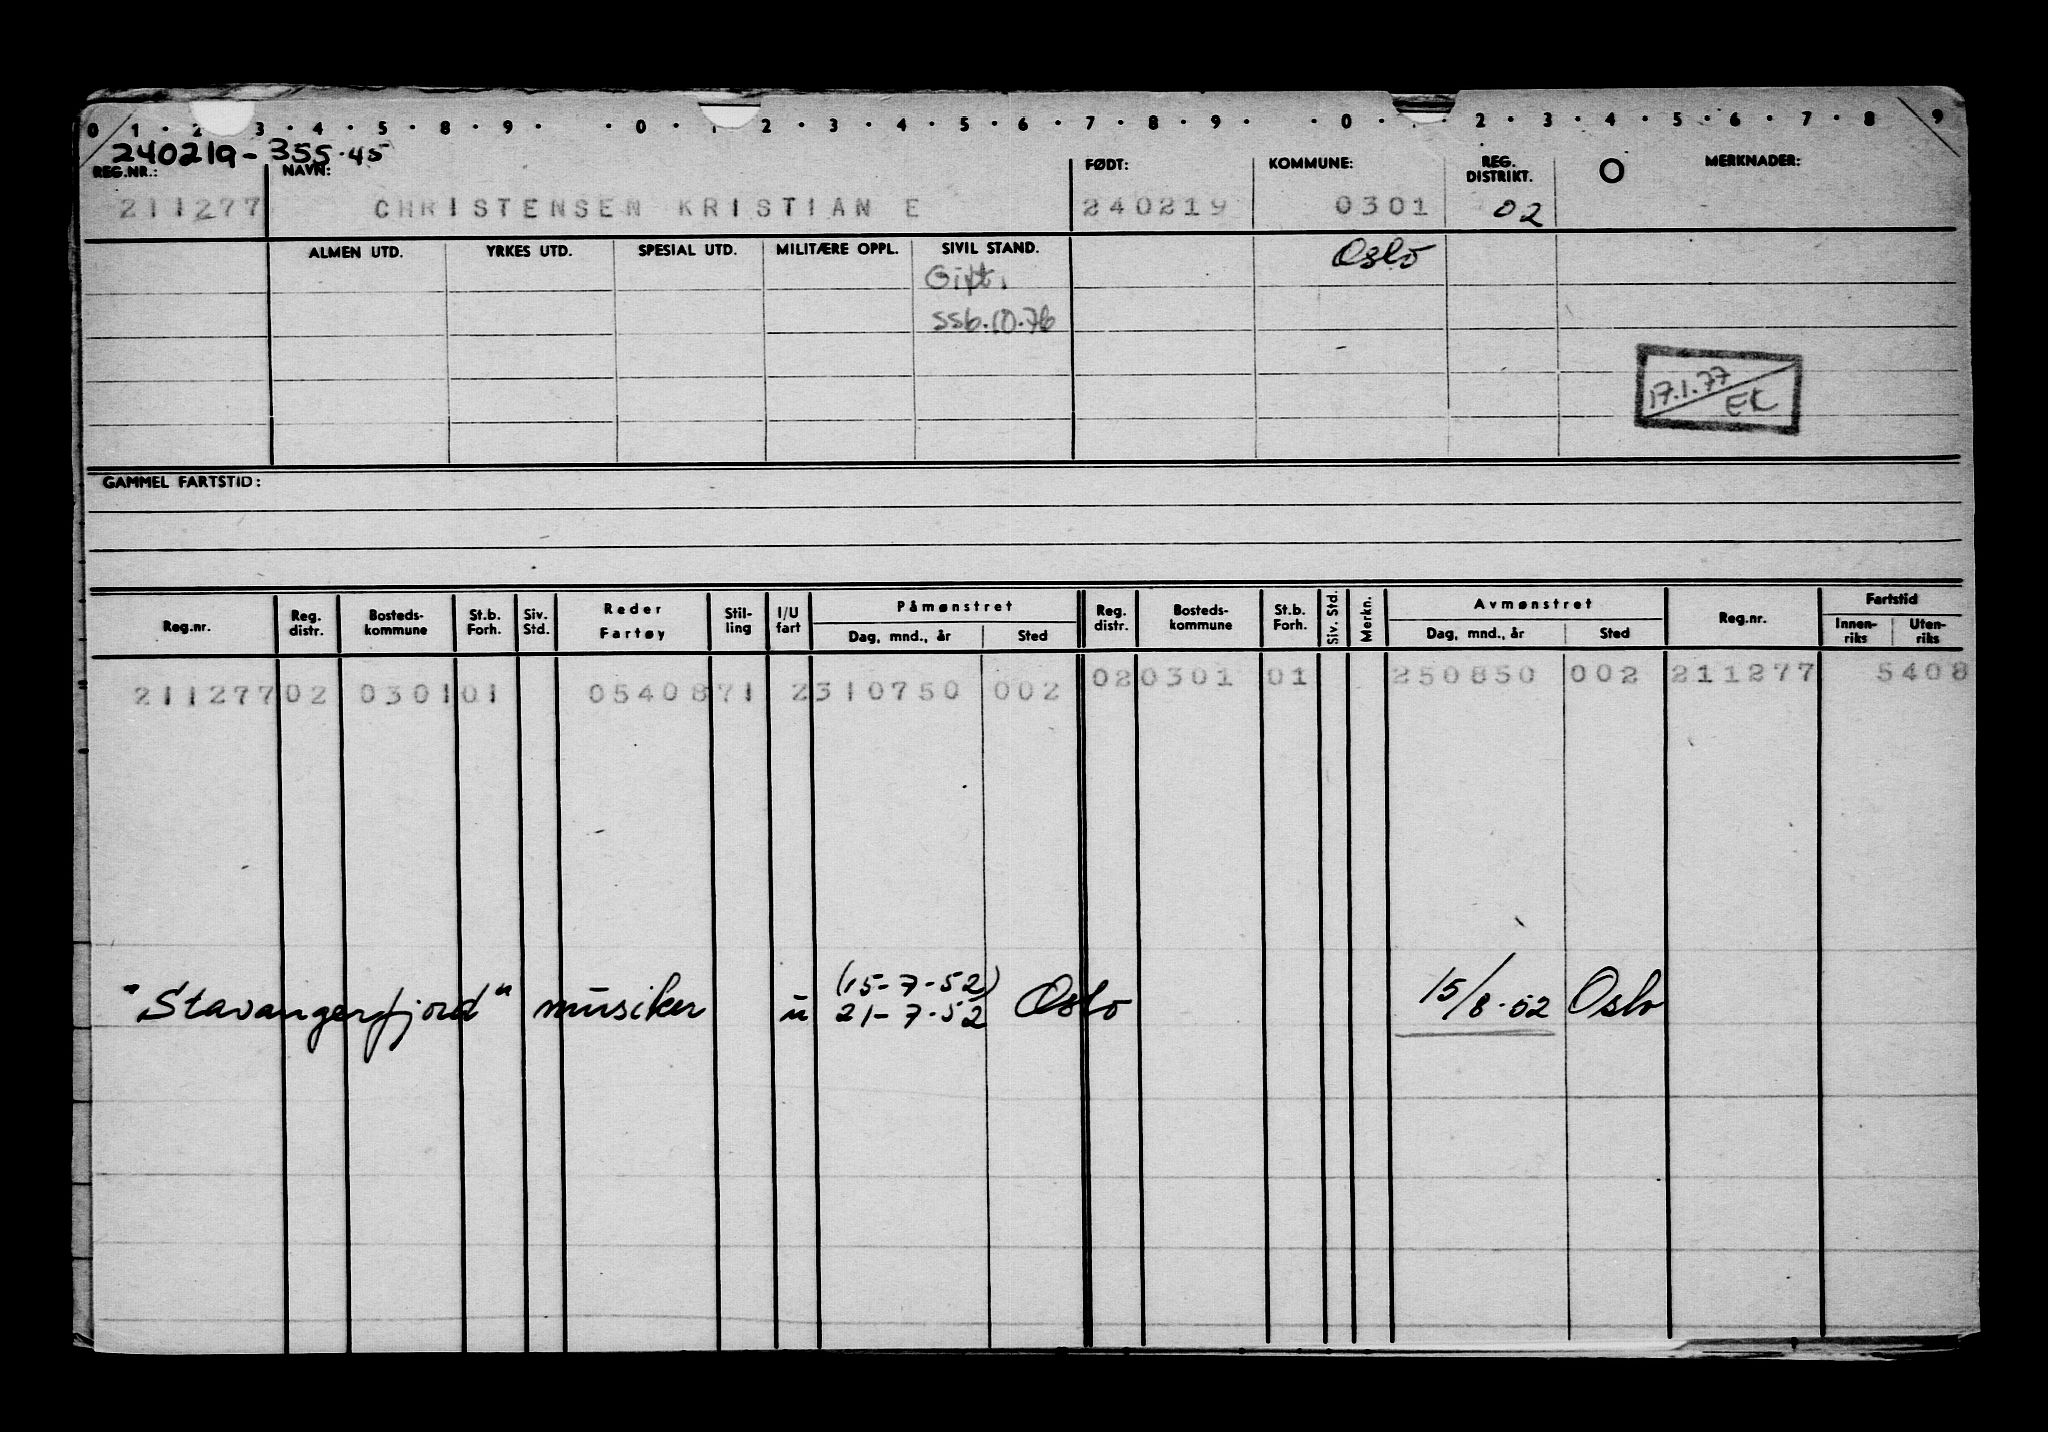 0 1 · 2 · 3 · 4 · 5 · 8 · 9 · · 0 · 1 · 2 · 3 · 4 · 5 · 6 · 7 · 8 · 9 · · 0 · · 2 · 3 · 4 · 5 · 6 · 7 · 8 · 9
240219-355.45
REG.NR.: NAVN: FØDT: KOMMUNE: REG. DISTRIKT. O MERKNADER:
211277 CHRISTENSEN KRISTIAN E 240219 0301 02
ALMEN UTD. YRKES UTD. SPESIAL UTD. MILITÆRE OPPL. SIVIL STAND. Oslo
Gift.
SSb.10.76
17.1.77
EK
GAMMEL FARTSTID:
Reg.nr. Reg. distr. Bosteds-kommune St.b. Forh. Siv. Std. Reder Fartøy Stil-ling I/U fart Påmønstret Dag, mnd., år Sted Reg. distr. Bosteds-kommune St.b. Forh. Siv. Std. Merkn. Avmønstret Dag, mnd., år Sted Reg.nr. Fartstid Innen-riks Uten-riks
211277 02 0301 01 05408 71 2 310750 002 02 0301 01 250850 002 211277 5408
(15-7-52)
"Stavangerfjord" musiker u 21-7-52 Oslo 15/8-52 Oslo